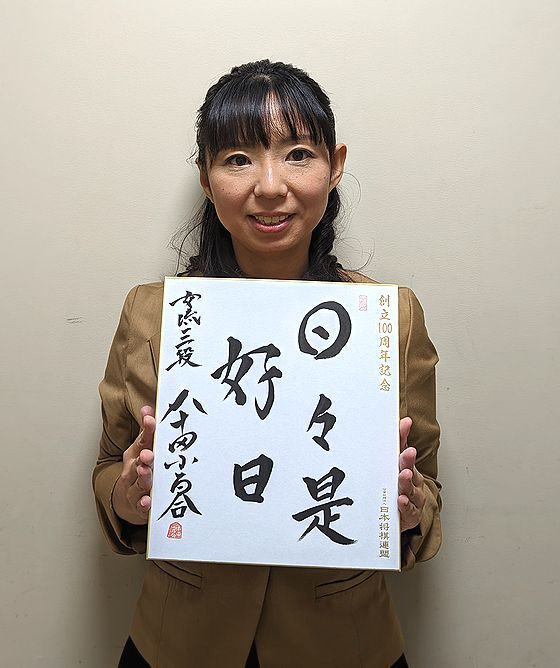 創立100周年記念
日本将棋連盟
日々是
好日
女流三段
本田小百合